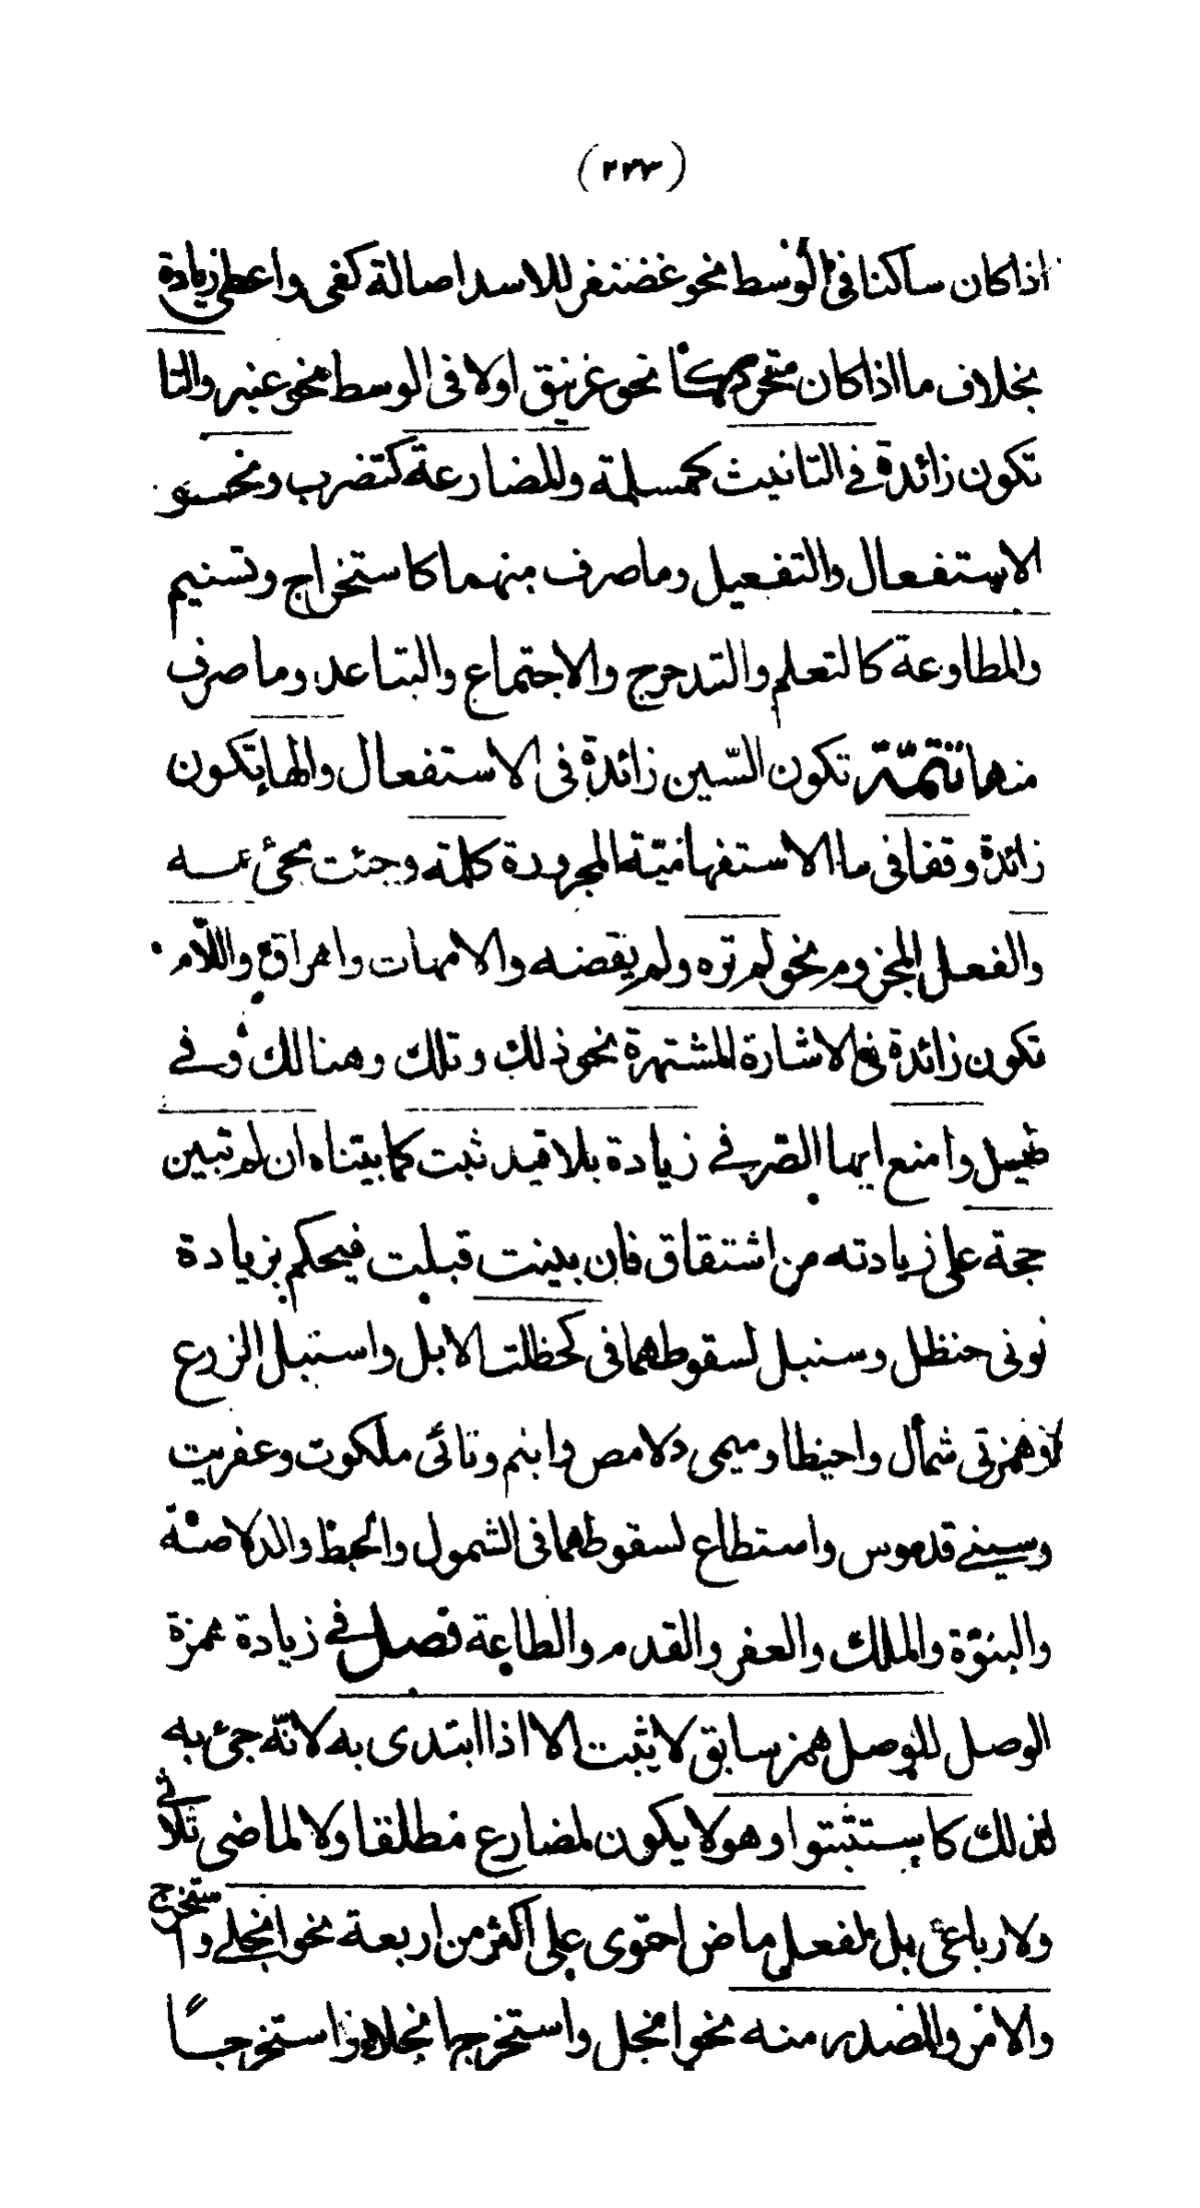 (٢٣٣)
اذا كان ساكنا في الوسط نحو غضنفر للاسد اصالة كفى واعطى زيادة
بخلاف ما اذا كان متحركا نحو غرنيق اولا في الوسط نحو عنبر والتا
تكون زائدة في التانيث كمسلمة وللضارعة كتضرب ونحو
الاستفعال والتفعيل وما صرف منهما كاستخراج وتسنيم
والمطاوعة كالتعلم والتدحرج والاجتماع والتباعد وما صرف
منها تتمّة تكون السّين زائدة في الاستفعال والها تكون
زائدة وقفا في ما الاستفهاميّة المجرودة كلمه وجئت مجئ مه
والفعل المجزوم نحو لم تره ولم يقضه والامهات واهراق واللّام
تكون زائدة في الاشارة المشتهرة نحو ذلك وتلك وهنالك وفي
طيسل وامنع ايها الصّرفي زيادة بلا قيد ثبت كما بيّناه ان لم تبين
حجة على زيادته من اشتقاق فان بينت قبلت فيحكم بزيادة
نوني حنظل وسنبل لسقوطهما في كحظلت الابل واسنبل الزرع
وهمزتي شمأل واحبنطا وميمى دلامص وابنم وتائى ملكوت وعفريت
وسيني قدموس واستطاع لسقوطهما في الشمول والحبط والدلاصة
والبنوّة والملك والعفر والقدم والطاعة فصل في زيادة همزة
الوصل للوصل همز سابق لا يثبت الا اذا ابتدى به لانّه جئ به
لذلك كاستثبتوا وهو لا يكون لمضارع مطلقا ولا لماضى ثلاثي
ولا رباعيّ بل لفعل ماض احتوى على اكثر من اربعة نحو انجلى واستخرج
والامر والمصدر منه نحو انجل واستخرج انجلاء واستخرجا